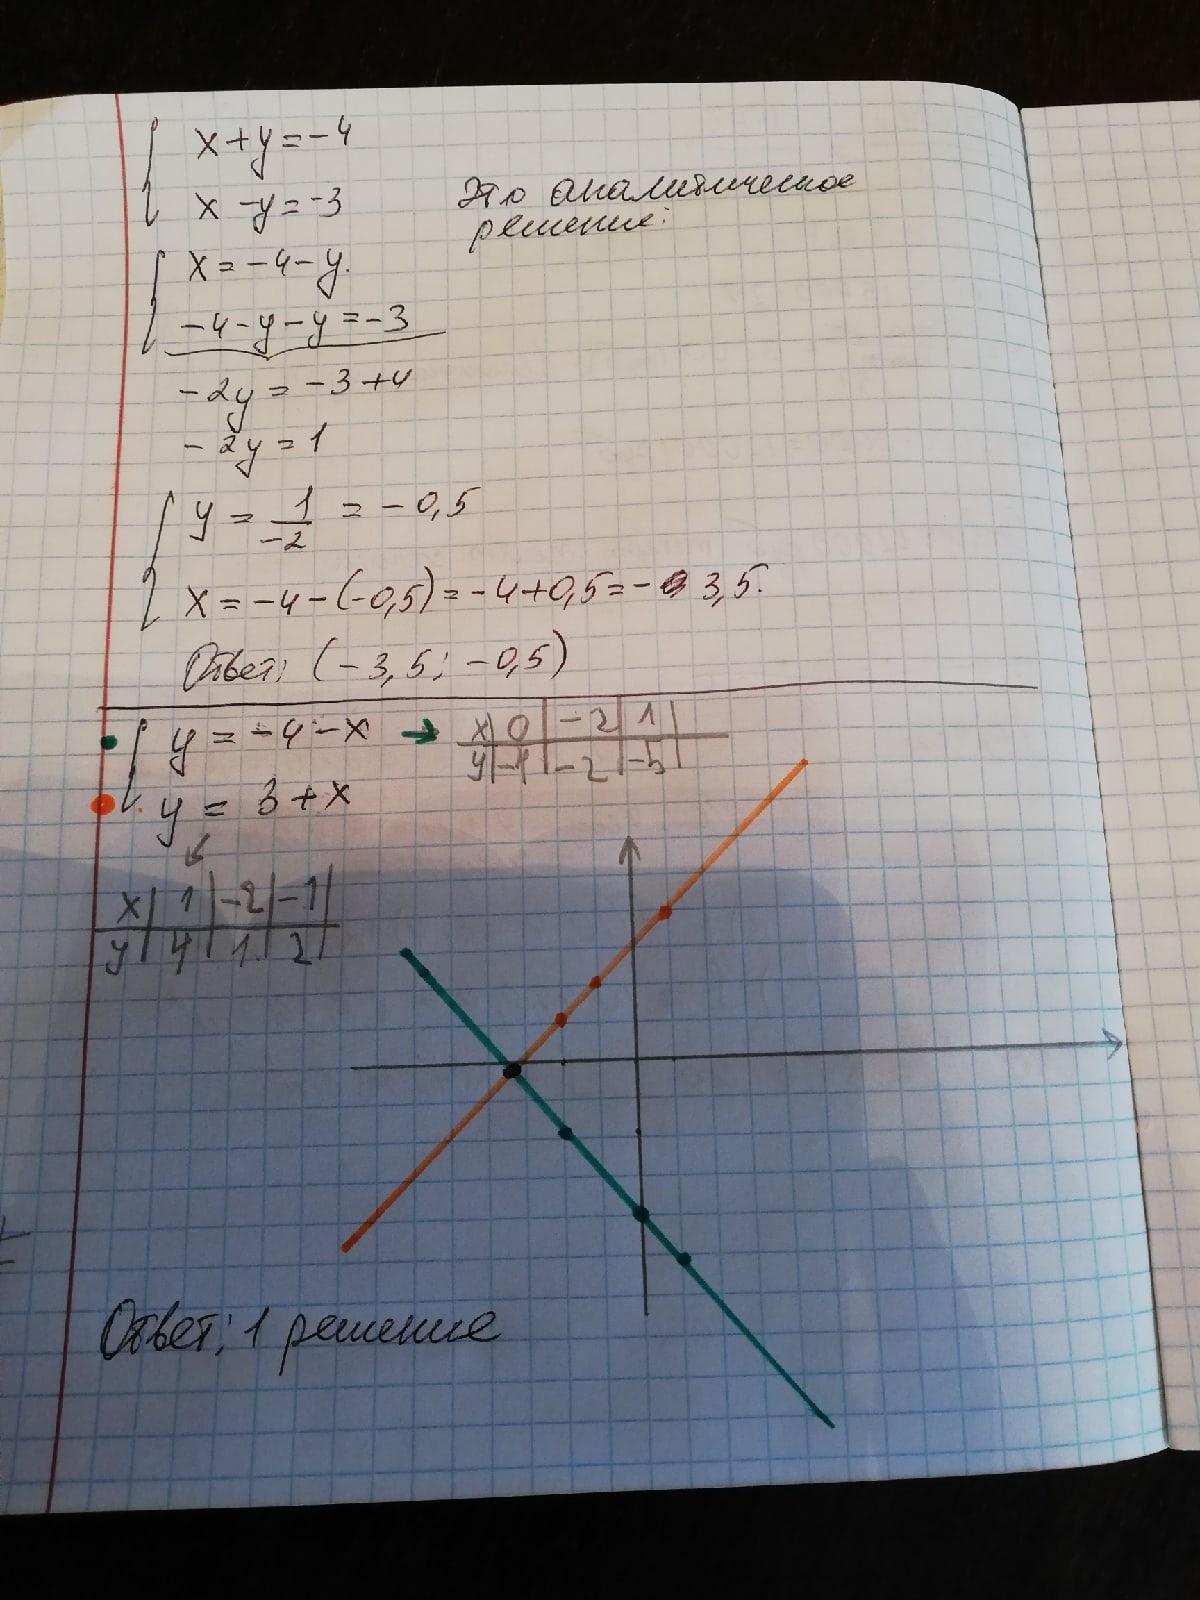 x+y=-4
x-y=-3
Это аналитическое
решение:
x=-4-y.
-4-y-y=-3
-2y=-3+4
-2y=1
y=1/-2=-0,5
x=-4-(-0,5)=-4+0,5=-3,5.
Ответ: (-3,5; -0,5)
y=-4-x → x|0|-2|1|
y|-4|-2|-5|
y=3+x
x|1|-2|-1|
y|4|1|2|
Ответ: 1 решение